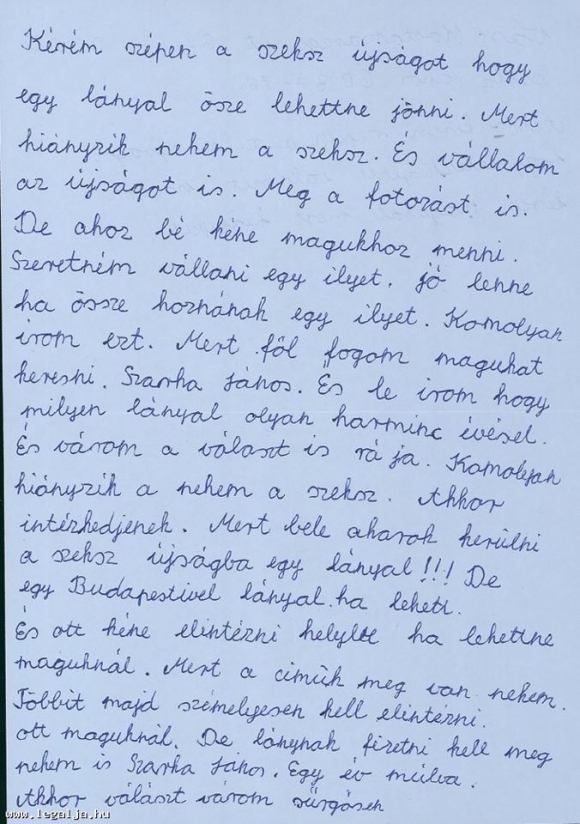 Kérém szépen a szeksz újságot hogy
egy lányal ösze lehettne jönni. Mert
hiányzik nekem a szeksz. És vállalom
az újságot is. Meg a fotozást is.
De ahoz bé kéne magukhoz menni.
Szeretném vállani egy ilyet. jó lenne
ha össze hoznának egy ilyet. Komolyan
irom ezt. Mert föl fogom magukat
keresni. Szarka János. És le irom hogy
milyen lányal olyan harminc évésel.
És várom a választ is rá ja. Komolyan
hiányzik a nekem a szeksz. Akkor
intézkedjenek. Mert bele akarok kerülni
a szeksz újságba egy lányal!!! De
egy Budapestivel lányal.ha lehett.
És ott kéne elintézni ha lehettne
maguknál. Mert a cimük meg van nekem.
Többit majd személyesen kell elintézni.
ott maguknál. De lánynak fizetni kell meg
nekem is Szarka János. Egy év múlva.
Akkor választ várom sürgösen
www.legalja.hu